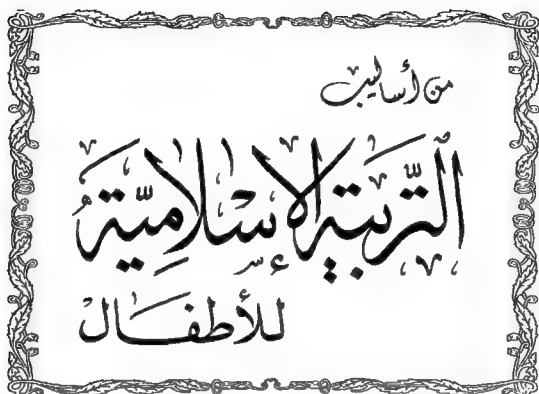 من أساليب
التربية الإسلامية
للأطفال